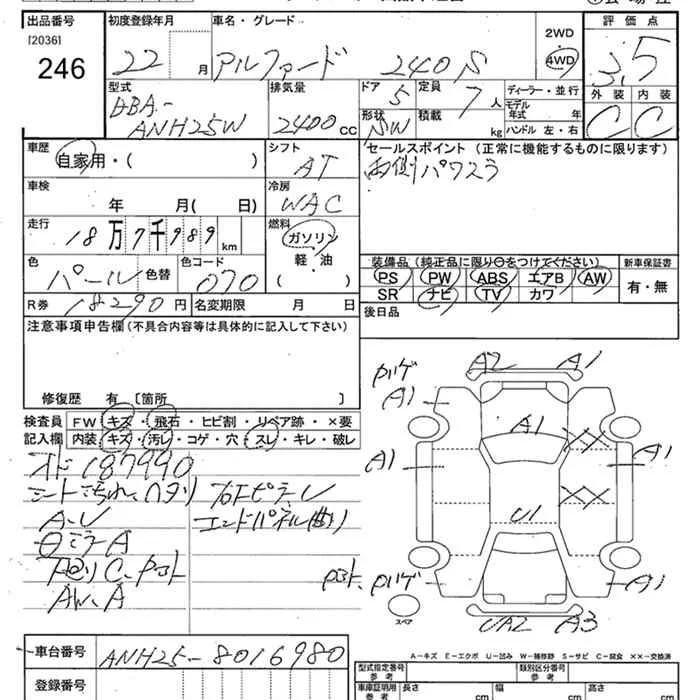 出品番号 初度登録年月 車名・グレード 評価点
[2036]
246 22 月 アルファード 240S 2WD 4WD 3.5
型式 排気量 ドア 5 定員 7 人 ディーラー・並行 外装 内装
DBA- 形状 SW 積載 kg モデル年式 年式 C C
ANH25W 2400 CC ハンドル 左・右
車歴 シフト セールスポイント (正常に機能するものに限ります)
自家用・( ) AT 両側パワスラ
車検 冷房
年 月( 日) WAC
走行 燃料
18万7千989 km ガソリン
軽・油
( )
色 パール 色替 色コード 070
装備品 (純正品に限り○をつけてください) 新車保証書
PS PW ABS エアB AW 有・無
SR ナビ TV カワ
R券 18290円 名変期限 月 日 後日品
注意事項申告欄 (不具合内容等は具体的に記入して下さい)
修復歴 有 〔箇所 〕
検査員 FW キズ・飛石・ヒビ割・リペア跡・×要
記入欄 内装 キズ・汚レ・コゲ・穴・スレ・キレ・破レ
187990
シート汚れ、ヘタリ
A・U エンドパネル曲り
ミラーA
下廻りC
AW、A
A2 A1
A1
A1 A1 XX
A1
XX
U1
A1
UA2 A3
スペア
A-キズ E-エクボ U-凹み W-補修跡 S-サビ C-腐食 ××-交換済
車台番号 ANH25-8016980
登録番号
型式指定番号 参考 類別区分番号 参考
車庫証明用 参考 長さ cm 幅 cm 高さ cm